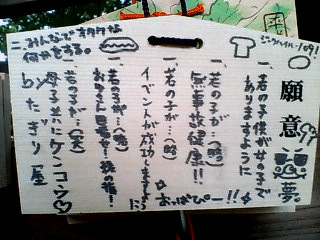 願意
夢。
一、若の子供が女の子で
ありますように
一、若の子が…(略)
無事故健康!!
一、若の子が…(略)
イベントが成功しますように
おっぱぴー!!
一、若の子が…(略)
一、若の子が…(笑)
母子共にケンコウ♡
一、みんなでオタクな
何かをする。
らたぎり屋